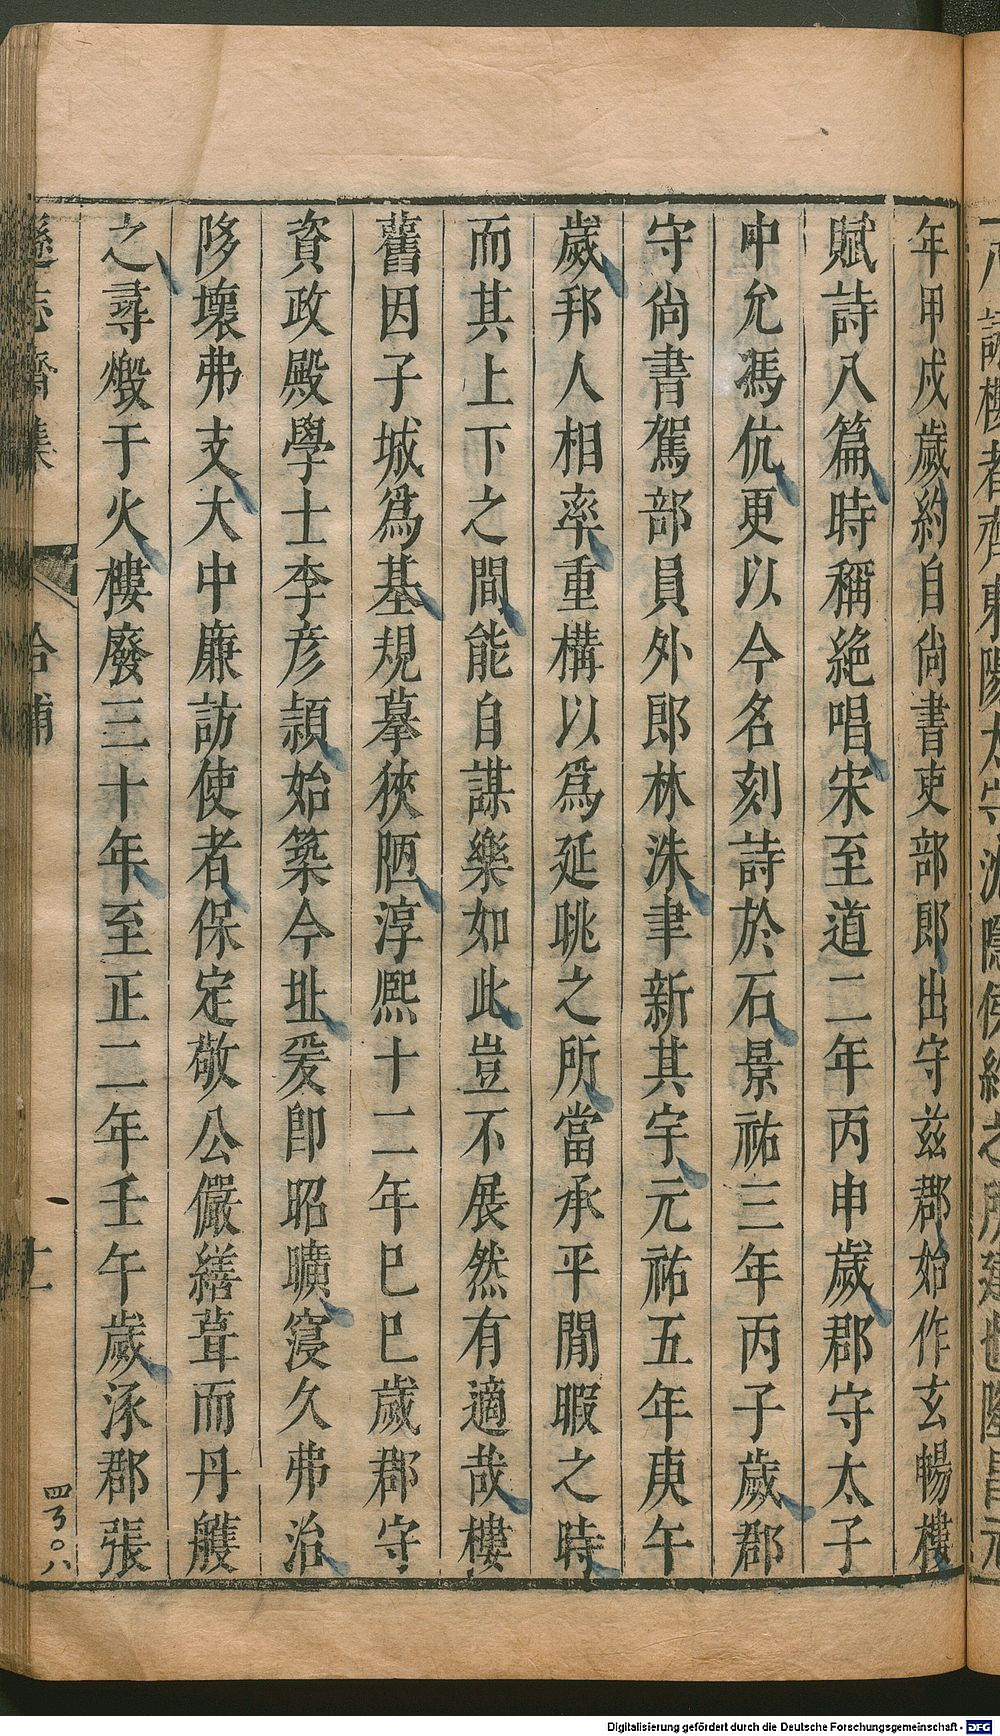 年甲戍歲約自尙書吏部郎出守玆郡始作玄暢樓
賦詩八篇時稱絶唱宋至道二年丙申歲郡守太子
中允馮伉更以今名刻詩於石景祐三年丙子歲郡
守尙書駕部員外郎林洙聿新其宇元祐五年庚午
歲邦人相率重構以爲延眺之所當承平閒暇之時
而其上下之間能自謀樂如此豈不展然有適哉樓
舊因子城爲基規摹狹陋淳熙十二年巳巳歲郡守
資政殿學士李彦頴始築今址爰卽昭曠寖久弗治
陊壞弗支大中廉訪使者保定敬公儼繕葺而丹雘
之尋燬于火樓廢三十年至正二年壬午歲涿郡張
遜志齋集
拾補
十一
四百〇八
Digitalisierung gefördert durch die Deutsche Forschungsgemeinschaft - DFG